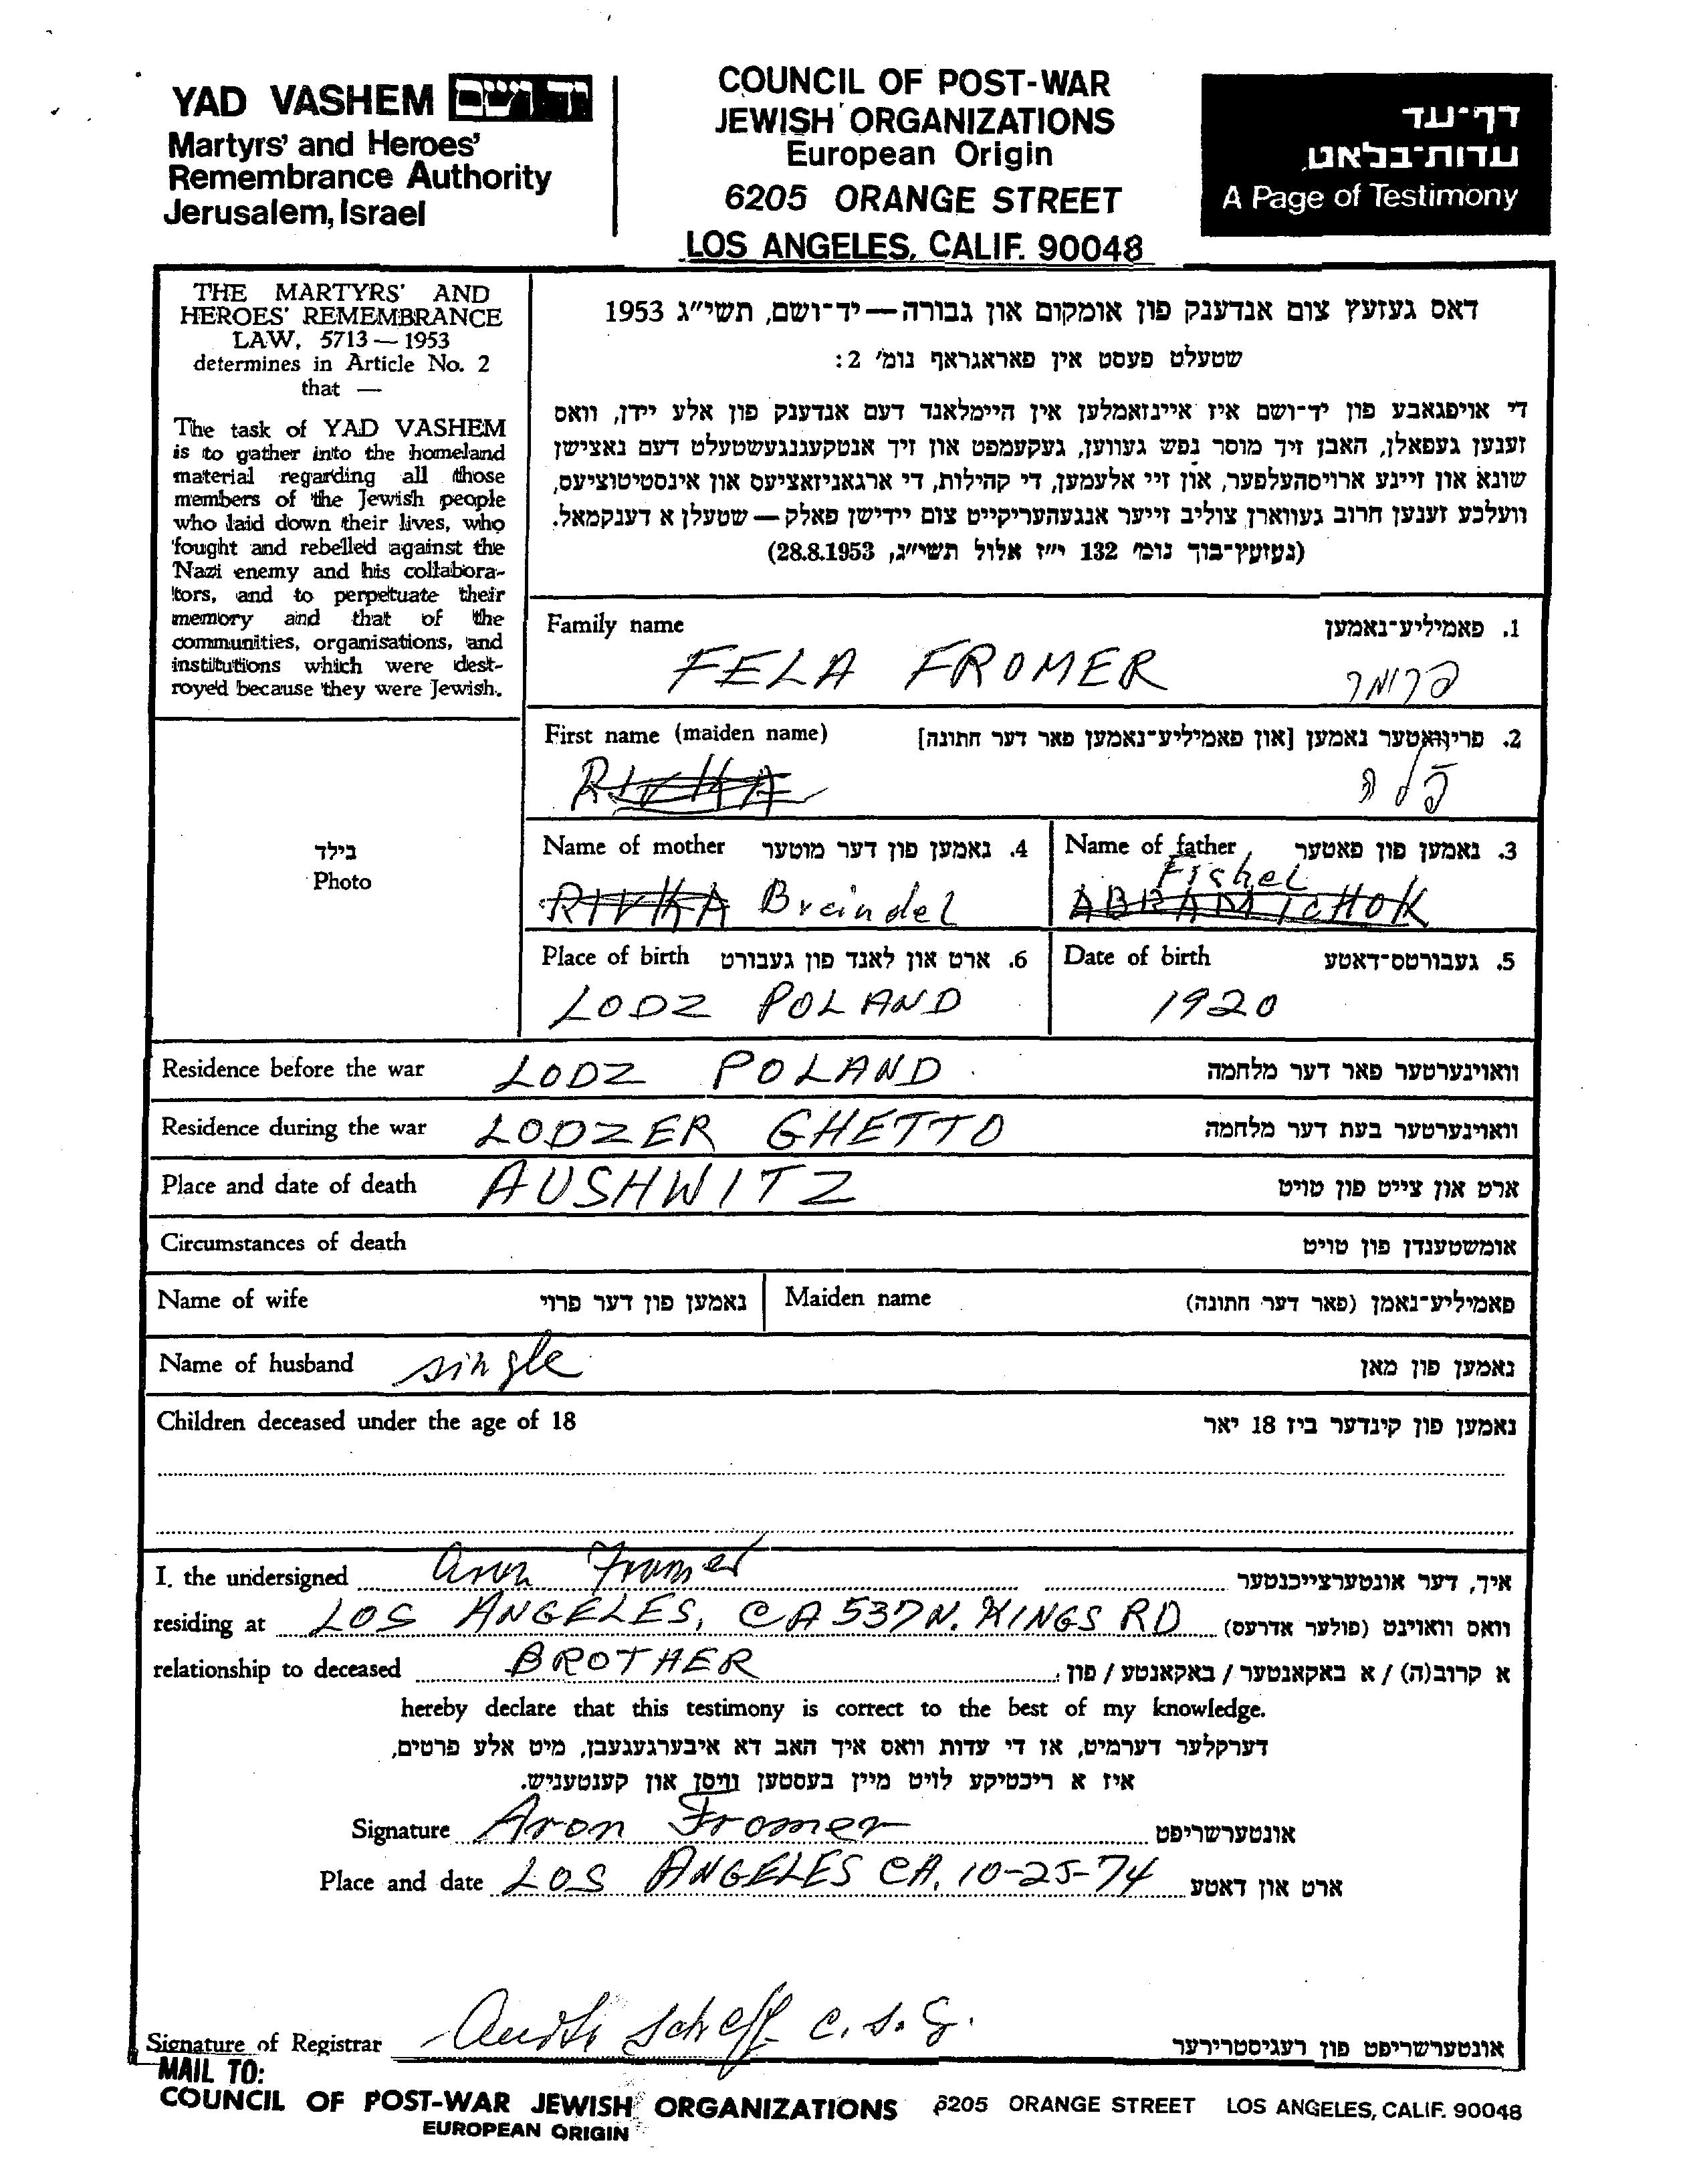 YAD VASHEM יד ושם
Martyrs' and Heroes'
Remembrance Authority
Jerusalem, Israel
COUNCIL OF POST-WAR
JEWISH ORGANIZATIONS
European Origin
6205 ORANGE STREET
LOS ANGELES, CALIF. 90048
דף־עד
עדות־בלאט
A Page of Testimony
THE MARTYRS' AND
HEROES' REMEMBRANCE
LAW, 5713 — 1953
determines in Article No. 2
that —
The task of YAD VASHEM
is to gather into the homeland
material regarding all those
members of the Jewish people
who laid down their lives, who
fought and rebelled against the
Nazi enemy and his collabora-
tors, and to perpetuate their
memory and that of the
communities, organisations, and
institutions which were dest-
royed because they were Jewish.
דאס געזעץ צום אנדענק פון אומקום און גבורה — יד־ושם, תשי״ג 1953
שטעלט פעסט אין פאראגראף נומ׳ 2:
די אויפגאבע פון יד־ושם איז איינזאמלען אין היימלאנד דעם אנדענק פון אלע יידן, וואס
זענען געפאלן, האבן זיך מוסר נפש געווען, געקעמפט און זיך אנטקעגנגעשטעלט דעם נאצישן
שונא און זיינע ארויסהעלפער, און זיי אלעמען, די קהילות, די ארגאניזאציעס און אינסטיטוציעס,
וועלכע זענען חרוב געווארן צוליב זייער אנגעהעריקייט צום יידישן פאלק — שטעלן א דענקמאל.
(געזעץ־בוך נומ׳ 132 י״ז אלול תשי״ג, 28.8.1953)
Family name 1. פאמיליע־נאמען
FELA FROMER פרומר
First name (maiden name) 2. פריוואטער נאמען [און פאמיליע־נאמען פאר דער חתונה]
RIVKA פלה
Name of mother 4. נאמען פון דער מוטער
RIVKA Breindel
Name of father 3. נאמען פון פאטער
Fishel
ABRAM ICHOK
Place of birth 6. ארט און לאנד פון געבורט
LODZ POLAND
Date of birth 5. געבורטס־דאטע
1920
בילד
Photo
Residence before the war LODZ POLAND וואוינערטער פאר דער מלחמה
Residence during the war LODZER GHETTO וואוינערטער בעת דער מלחמה
Place and date of death AUSHWITZ ארט און צייט פון טויט
Circumstances of death אומשטענדן פון טויט
Name of wife נאמען פון דער פרוי Maiden name פאמיליע־נאמן (פאר דער חתונה)
Name of husband single נאמען פון מאן
Children deceased under the age of 18 נאמען פון קינדער ביז 18 יאר
I, the undersigned Aron Fromer איך, דער אונטערצייכנטער
residing at LOS ANGELES, CA 537 N. KINGS RD וואס וואוינט (פולער אדרעס)
relationship to deceased BROTHER א קרוב(ה) / א באקאנטער / באקאנטע / פון:
hereby declare that this testimony is correct to the best of my knowledge.
דערקלער דערמיט, אז די עדות וואס איך האב דא איבערגעגעבן, מיט אלע פרטים,
איז א ריכטיקע לויט מיין בעסטען וויסן און קענטעניש.
Signature Aron Fromer אונטערשריפט
Place and date LOS ANGELES CA. 10-25-74 ארט און דאטע
Signature of Registrar C.S.G. אונטערשריפט פון רעגיסטרירער
MAIL TO:
COUNCIL OF POST-WAR JEWISH ORGANIZATIONS 6205 ORANGE STREET LOS ANGELES, CALIF. 90048
EUROPEAN ORIGIN